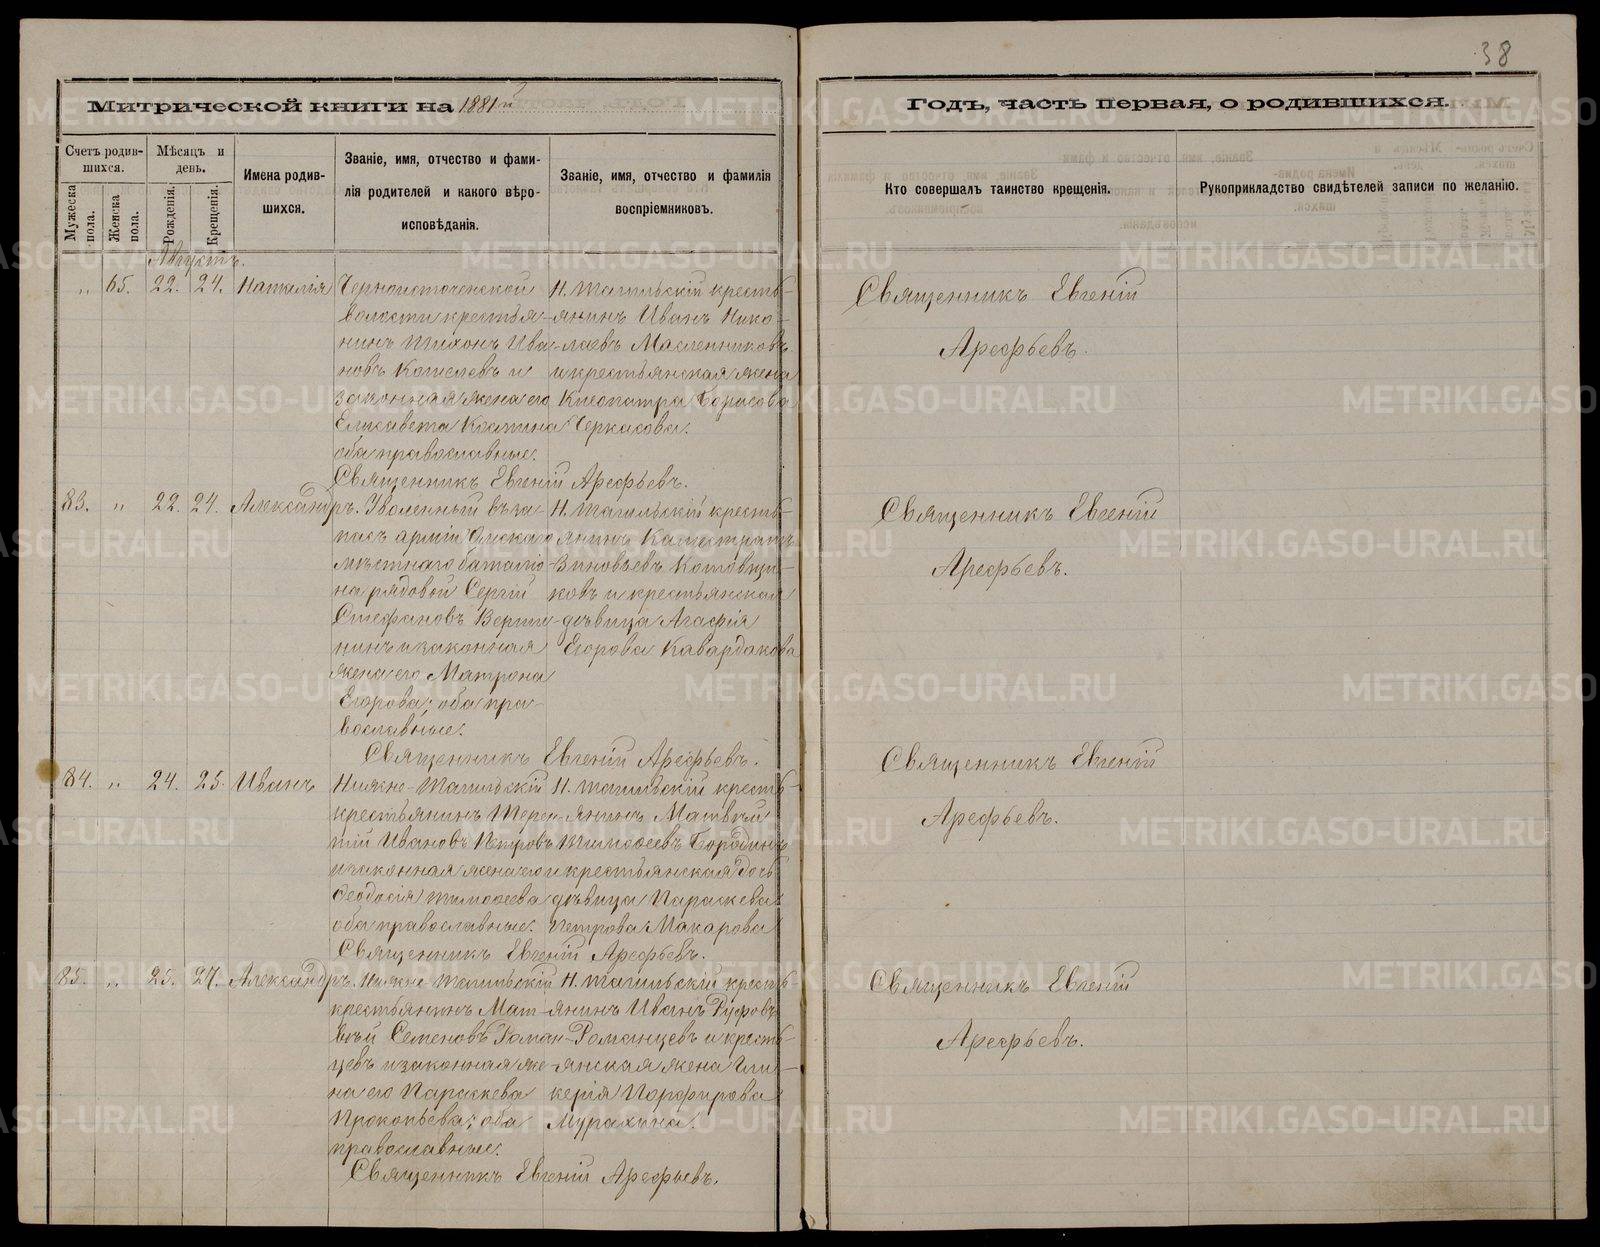 38
Митрической книги на 1881й
Годъ, часть первая, о родившихся.
Счетъ родившихся.
Мужеска пола.
Женска пола.
Мѣсяцъ и день.
Рожденія.
Крещенія.
Имена родившихся.
Званіе, имя, отчество и фамилія родителей и какого вѣроисповѣданія.
Званіе, имя, отчество и фамилія воспріемниковъ.
Кто совершалъ таинство крещенія.
Рукоприкладство свидѣтелей записи по желанію.
Августъ.
„ 65. 22. 24. Наталія
Черноисточенской
волости крестья-
нинъ Тихонъ Ива-
новъ Кошелевъ и
законная жена его
Елисавета Козмина
оба православные.
Н. Тагильскій кресть-
янинъ Иванъ Нико-
лаевъ Масленниковъ
и крестьянская жена
Клеопатра Борисова
Черкасова.
Священникъ Евгеній Арефьевъ.
Священникъ Евгеній
Арефьевъ.
83. „ 22. 24. Александръ.
Уволенный въ за-
пасъ арміи Омскаго
мѣстнаго баталіо-
на рядовой Сергій
Стефановъ Верши-
нинъ и законная
жена его Матрона
Егорова; оба пра-
вославные.
Н. Тагильскій кресть-
янинъ Калистратъ
Зиновьевъ Котовщи-
ковъ и крестьянская
дѣвица Агафія
Егорова Кавардакова
Священникъ Евгеній Арефьевъ.
Священникъ Евгеній
Арефьевъ.
84. „ 24. 25. Иванъ
Нижне-Тагильскій
крестьянинъ Терен-
тій Ивановъ Петровъ
и законная жена его
Феодосія Тимофеева
оба православные.
Н. Тагильскій кресть-
янинъ Матвѣй
Тимофеевъ Бородинъ
и крестьянская дочь
дѣвица Параскева
Петрова Макарова
Священникъ Евгеній Арефьевъ.
Священникъ Евгеній
Арефьевъ.
85. „ 25. 27. Александръ.
Нижне-Тагильскій
крестьянинъ Мат-
вѣй Семеновъ Роман-
цевъ и законная же-
на его Параскева
Прокопьева; оба
православные.
Н. Тагильскій кресть-
янинъ Иванъ Руфовъ
Романцевъ и кресть-
янская жена Гли-
керія Порфирова
Мурахина.
Священникъ Евгеній Арефьевъ.
Священникъ Евгеній
Арефьевъ.
METRIKI.GASO-URAL.RU